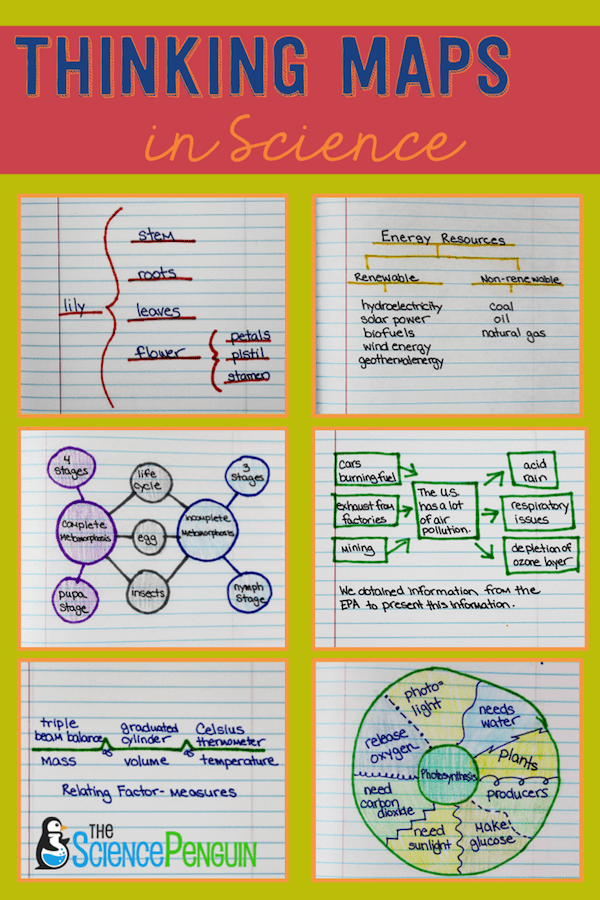 THINKING MAPS
in Science
lily
stem
roots
leaves
flower
petals
pistil
stamen
Energy Resources
Renewable
hydroelectricity
solar power
biofuels
wind energy
geothermal energy
Non-renewable
coal
oil
natural gas
4
stages
Complete
Metamorphosis
pupa
stage
life
cycle
egg
insects
3
stages
Incomplete
Metamorphosis
nymph
stage
cars
burning fuel
exhaust from
factories
mining
The U.S.
has a lot
of air
pollution.
acid
rain
respiratory
issues
depletion of
ozone layer
We obtained information from the
EPA to present this information.
triple
beam balance
mass
as
graduated
cylinder
volume
as
Celsius
thermometer
temperature
Relating Factor- measures
THE
SCIENCEPENGUIN
Photosynthesis
photo=
light
needs
water
plants
producers
make
glucose
need
sunlight
need
carbon
dioxide
release
oxygen